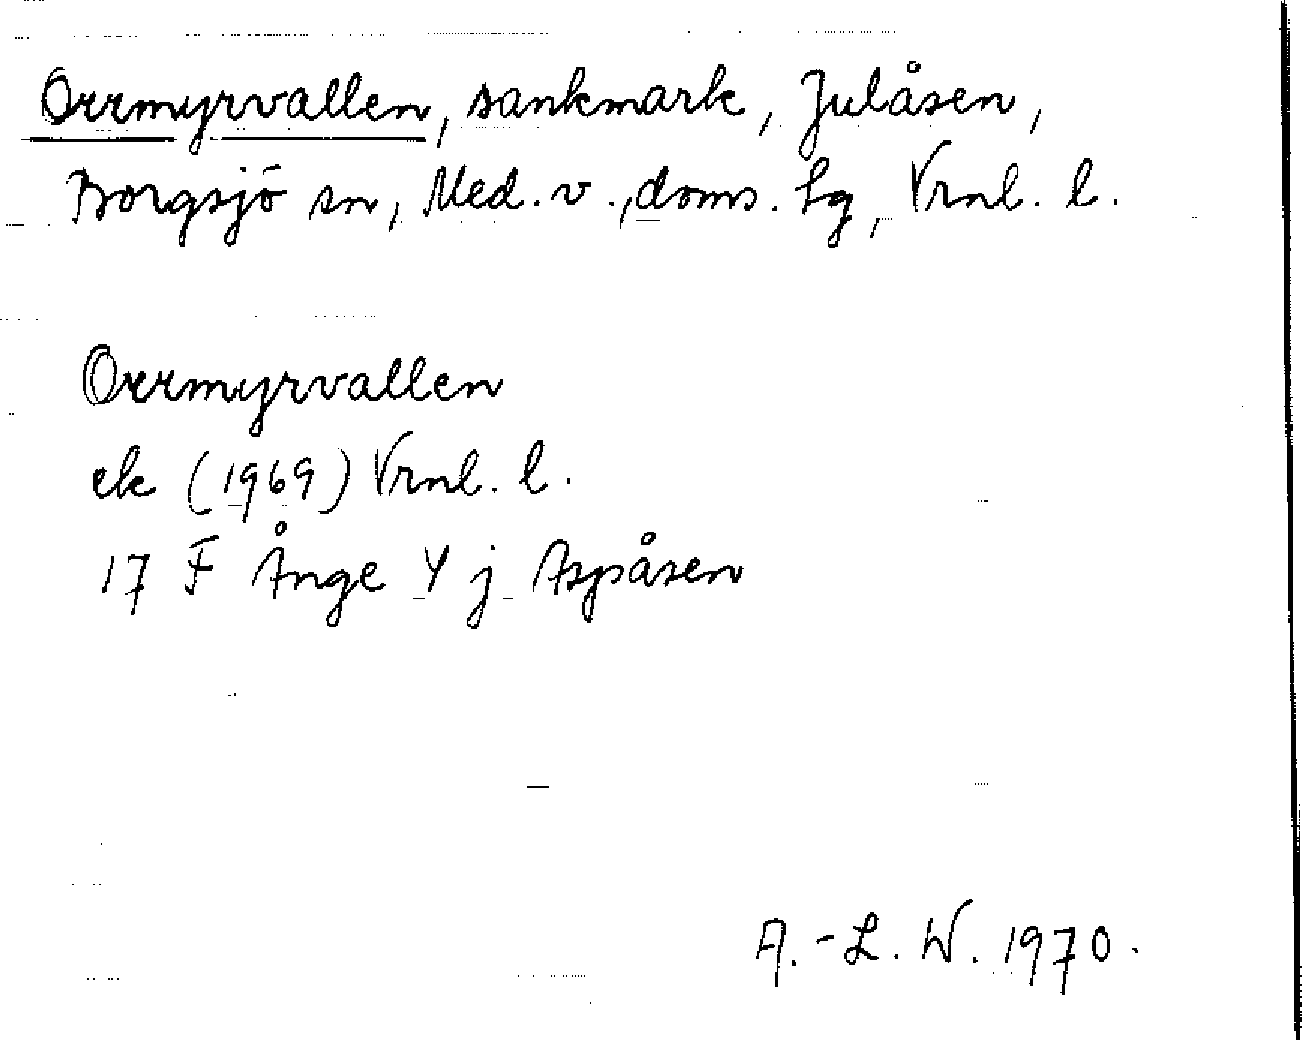 Orrmyrvallen, sankmark, Julåsen,
Borgsjö sn, Med. v., doms. lg, Vrnl. l.
Orrmyrvallen
ek (1969) Vrnl. l.
17 F Ånge Y j Aspåsen
A.-L. W. 1970.